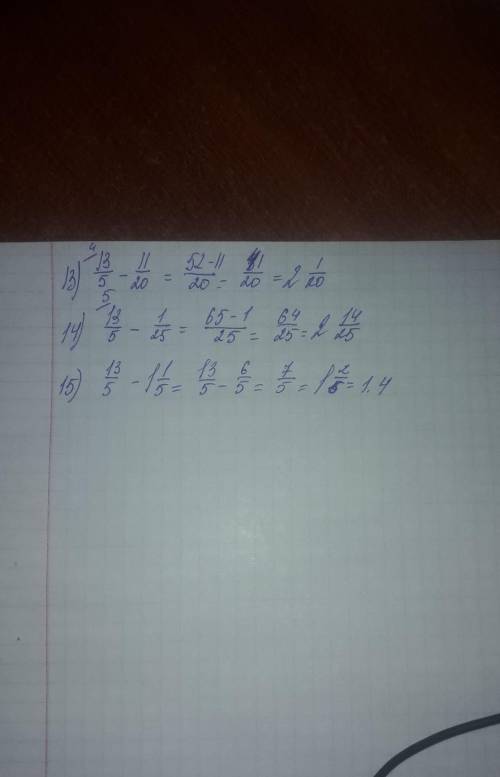 13) ⁴⁄ 13/5 - 11/20 = 52-11/20 = 41/20 = 2 1/20
14) ⁵⁄ 13/5 - 1/25 = 65-1/25 = 64/25 = 2 14/25
15) 13/5 - 1 1/5 = 13/5 - 6/5 = 7/5 = 1 2/5 = 1.4